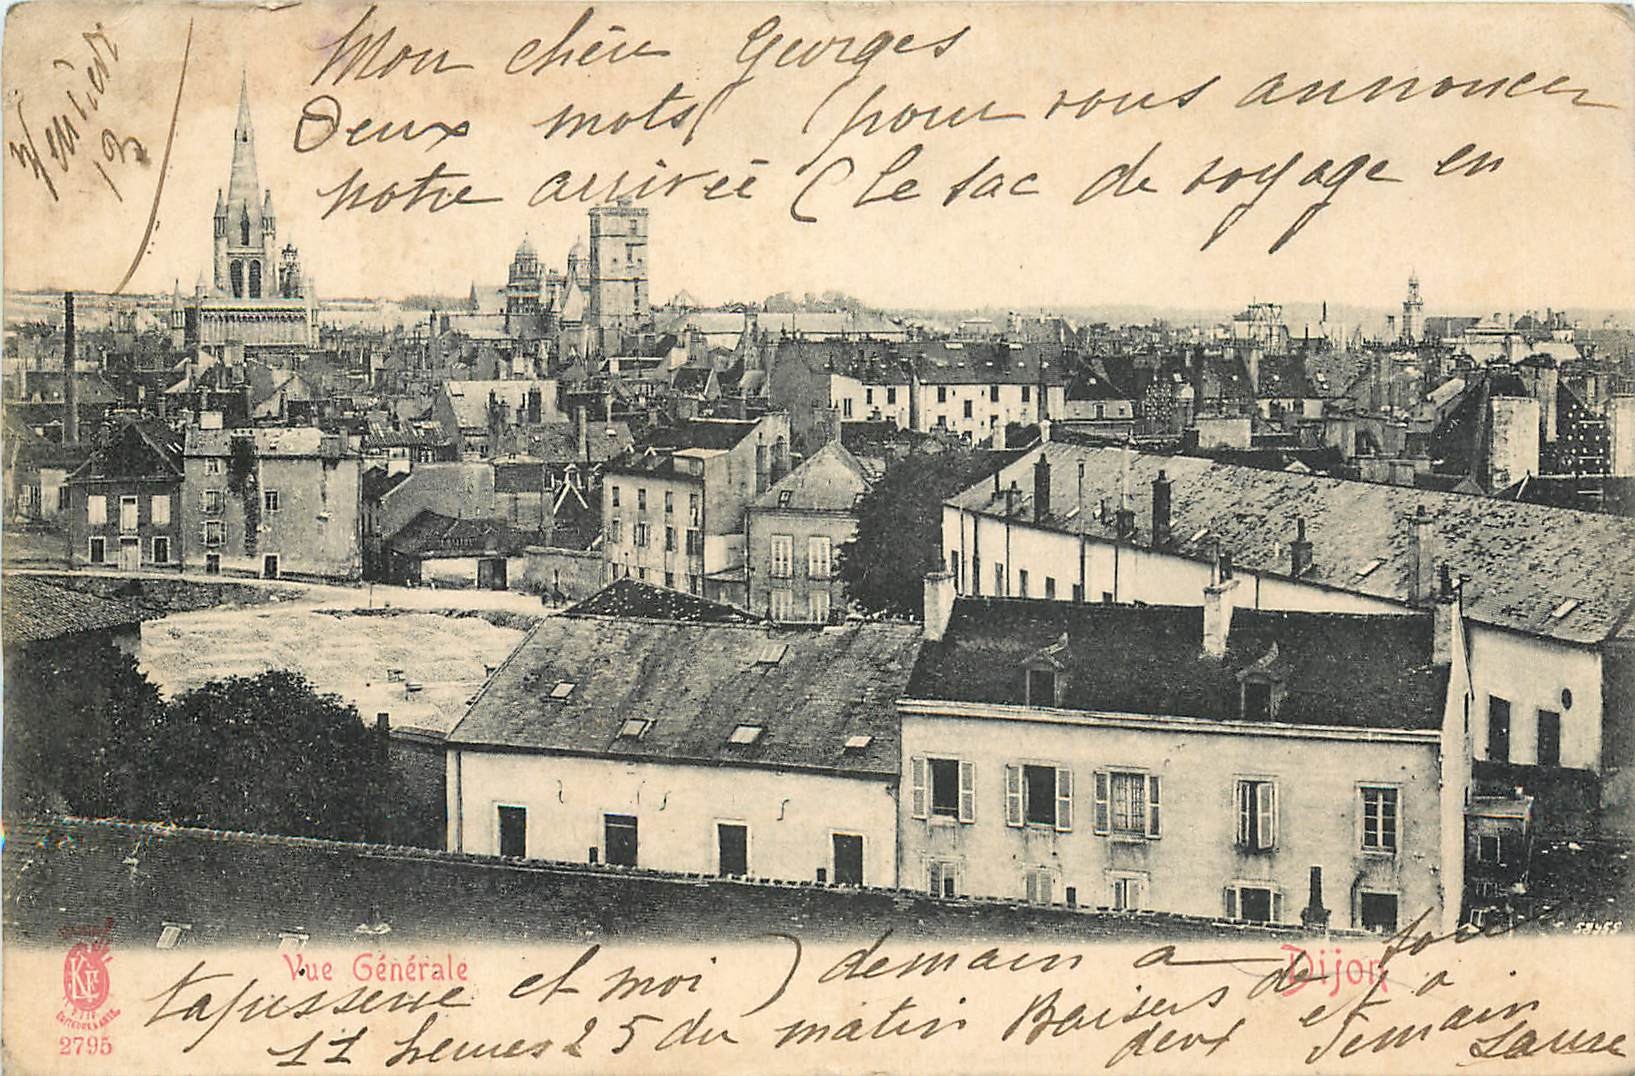 Mon chère Georges
Deux mots pour vous annoncer
notre arrivée (le sac de voyage en
tapisserie et moi) demain a
11 heures 25 du matin Baisers de
tous deux et a demain
Laure
13
Vue Générale
Dijon
2795